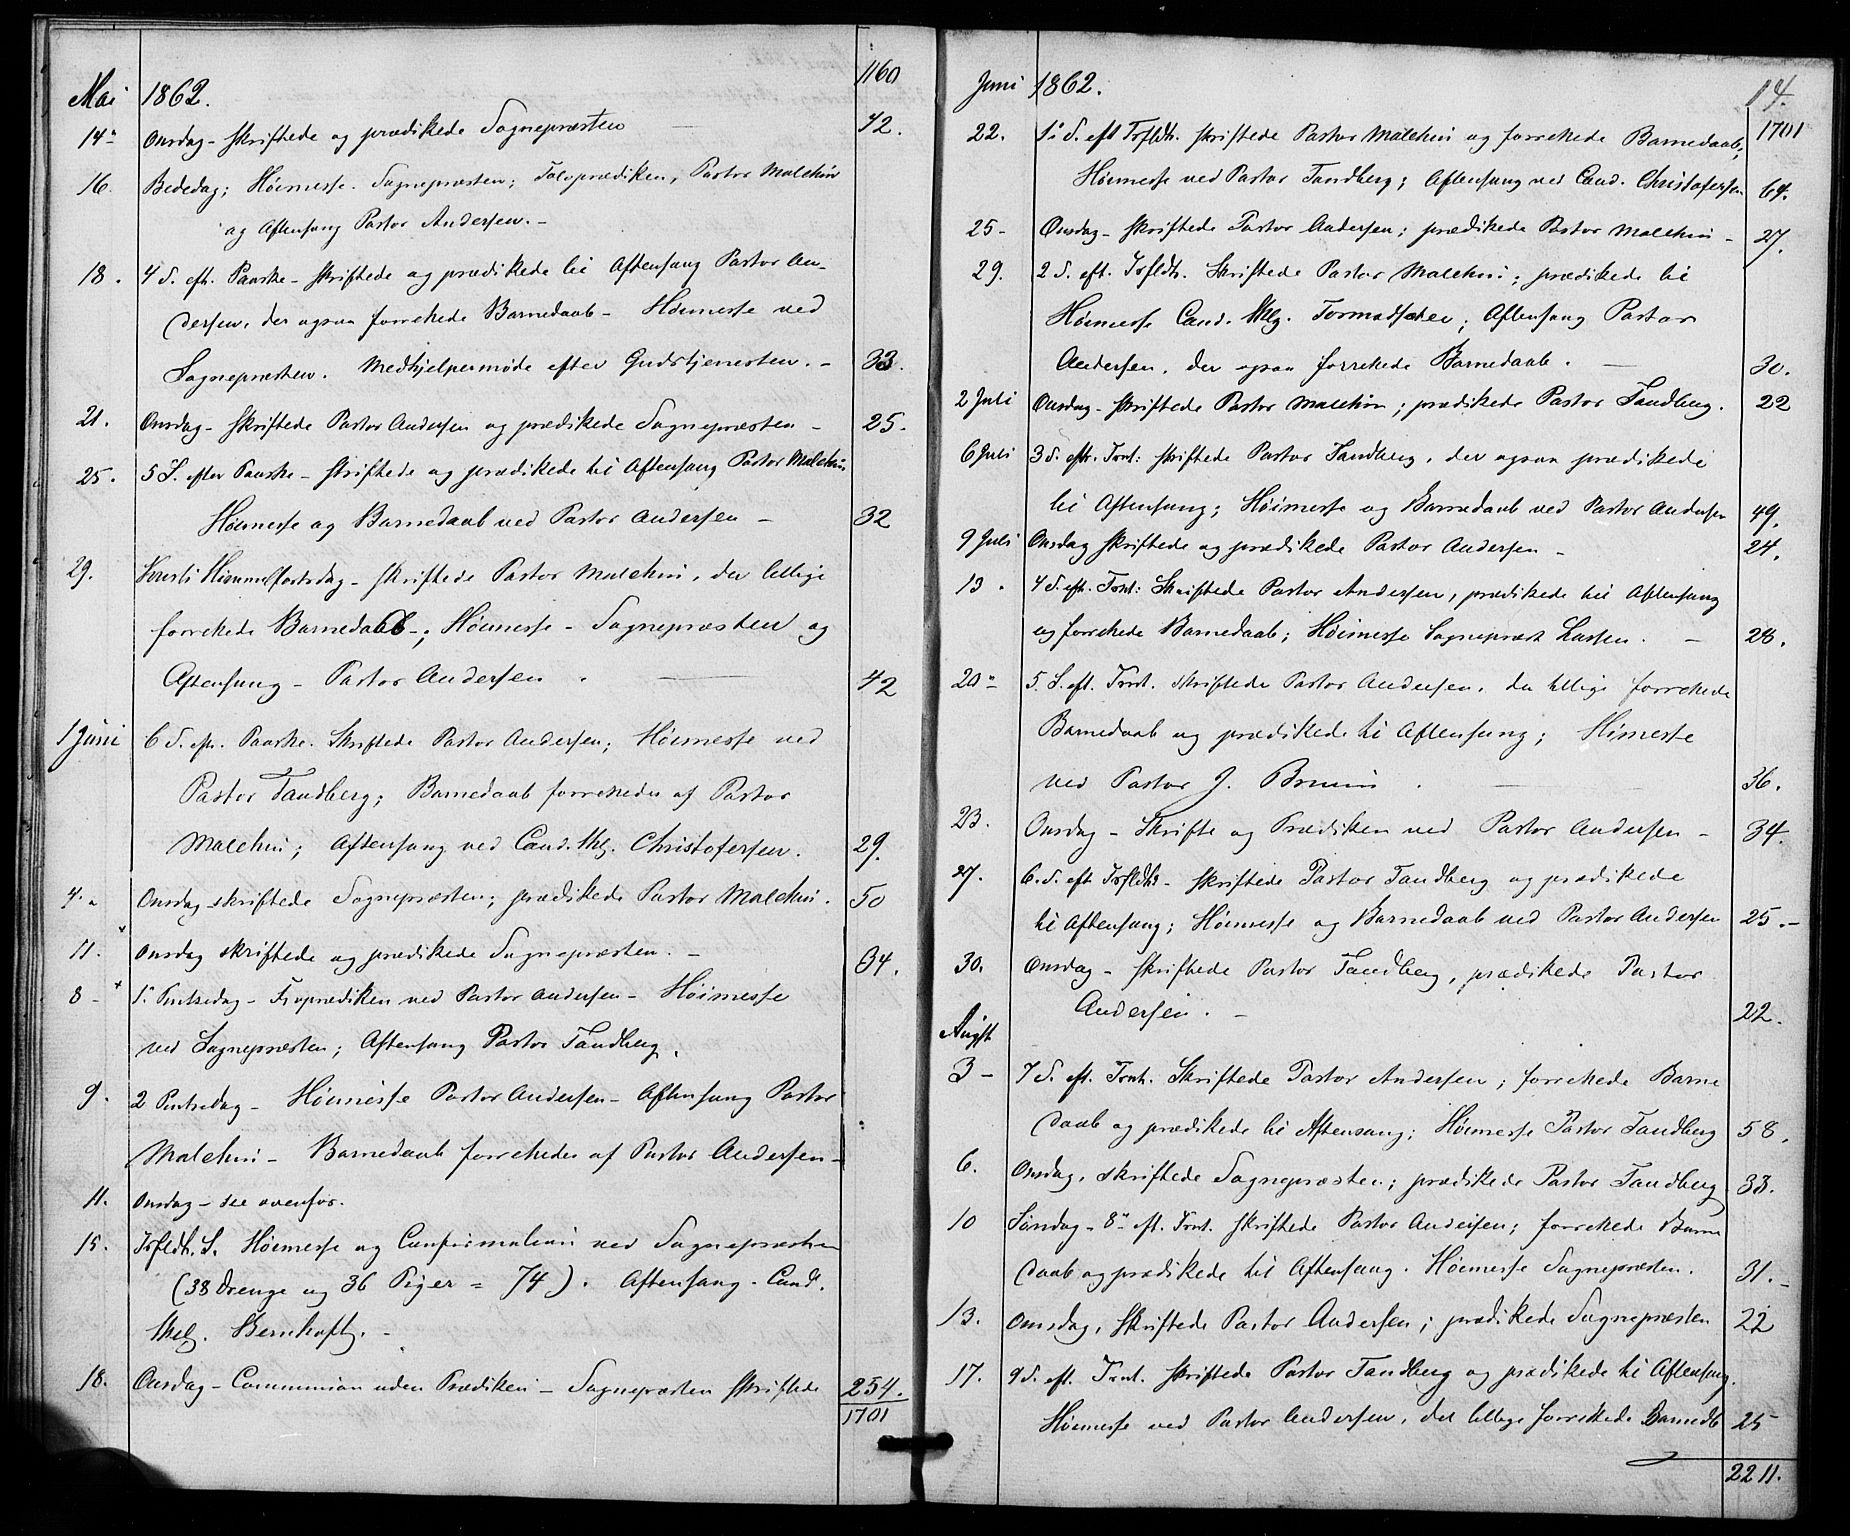 1160
Mai 1862.
14" Onsdag - skriftede og prædikede Sognepræsten 42.
16. Bededag; Høimesse. Sognepræsten; Tolvprædiken, Pastor Malchin
og Aftensang Pastor Andersen. -
18. 4 S. eft. Paaske - skriftede og prædikede til Aftensang Pastor An-
dersen, der ogsaa forrettede Barnedaab - Høimesse ved
Sognepræsten. Medhjelpermøde efter Gudstjenesten. - 33.
21. Onsdag - skriftede Pastor Andersen og prædikede Sognepræsten - 25.
25. 5 S. efter Paaske - skriftede og prædikede til Aftensang Pastor Malchin
Høimesse og Barnedaab ved Pastor Andersen - 32
29. Kristi Himmelfartsdag - skriftede Pastor Malchin, der tillige
forrettede Barnedaab -; Høimesse - Sognepræsten og
Aftensang - Pastor Andersen. 42
1 Juni 6 S. eft. Paaske. Skriftede Pastor Andersen; Høimesse ved
Pastor Tandberg; Barnedaab forrettedes af Pastor
Malchin; Aftensang ved Cand. thlg. Christofersen. 29.
4. " Onsdag skriftede Sognepræsten; prædikede Pastor Malchin. 50
11. Onsdag skriftede og prædikede Sognepræsten. - 34.
8 - + 1. Pintsedag - Froprædiken ved Pastor Andersen - Høimesse
ved Sognepræsten; Aftensang Pastor Tandberg.
9. 2 Pintsedag - Høimesse Pastor Andersen - Aftensang Pastor
Malchin - Barnedaab forrettedes af Pastor Andersen -
11. Onsdag - see ovenfor.
15. Trfldh. S. Høimesse og Confirmation ved Sognepræsten
(38 Drenge og 36 Piger = 74). Aftensang - Cand.
thelg. Bernhoft. -
18. Onsdag - Communion uden Prædiken - Sognepræsten skriftede 254.
1701
14.
Juni 1862. 1701
22. 1. S. eft Trfldh. skriftede Pastor Malchin og forrettede Barnedaab;
Høimesse ved Pastor Tandberg; Aftensang ved Cand. Christofersen 64.
25 - Onsdag - skriftede Pastor Andersen; prædikede Pastor Malchin - 27.
29. 2 S. eft. Trfldh. Skriftede Pastor Malchin; prædikede til
Høimesse Cand. thlg. Tormodsæter; Aftensang Pastor
Andersen, der ogsaa forrettede Barnedaab. 30.
2 Juli Onsdag - skriftede Pastor Malchin; prædikede Pastor Tandberg. 22
6 Juli 3 S. eftr. Trnt: skriftede Pastor Tandberg, der ogsaa prædikede
til Aftensang; Høimesse og Barnedaab ved Pastor Andersen 49.
9 Juli Onsdag skriftede og prædikede Pastor Andersen - 24.
13. 4 S. eft. Trnt: Skriftede Pastor Andersen, prædikede til Aftensang
og forrettede Barnedaab; Høimesse Sognepræst Lassen. - 28.
20" 5. S. eft. Trnt. skriftede Pastor Andersen, der tillige forrettede
Barnedaab og prædikede til Aftensang; Høimesse
ved Pastor J. Bruun. 36.
23. Onsdag - Skrifte og Prædiken ved Pastor Andersen - 34.
27. 6. S. eft Trfldh - skriftede Pastor Tandberg og prædikede
til Aftensang; Høimesse og Barnedaab ved Pastor Andersen 25. -
30. Onsdag - skriftede Pastor Tandberg, prædikede Pastor
Andersen. - 22.
Augst
3 - 7 S. eft. Trnt. Skriftede Pastor Andersen; forrettede Barne
daab og prædikede til Aftensang; Høimesse Pastor Tandberg 58.
6. Onsdag, skriftede Sognepræsten; prædikede Pastor Tandberg 33.
10 Søndag - 8" eft. Trnt. skriftede Pastor Andersen; forrettede Barne
daab og prædikede til Aftensang. Høimesse Sognepræsten. 31. -
13. Onsdag, skriftede Pastor Andersen; prædikede Sognepræsten 22
17. 9 S. eft. Trnt. skriftede Pastor Tandberg og prædikede til Aftensang.
Høimesse ved Pastor Andersen, der tillige forrettede Barnedb 25
2211.